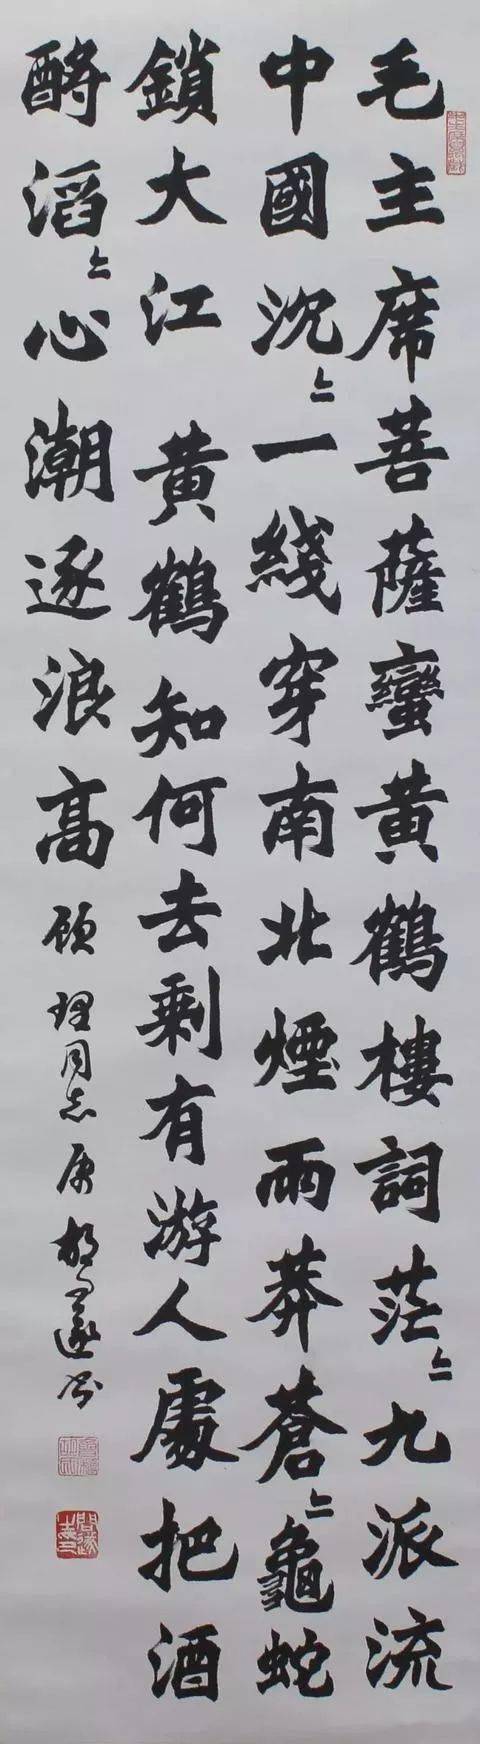 毛主席菩薩蠻黄鶴樓詞茫〻九派流
中國沈〻一綫穿南北煙雨莽蒼〻龜蛇
鎖大江 黄鶴知何去剩有游人處把酒
酹滔〻心潮逐浪高 顧理同志属 胡問遂書